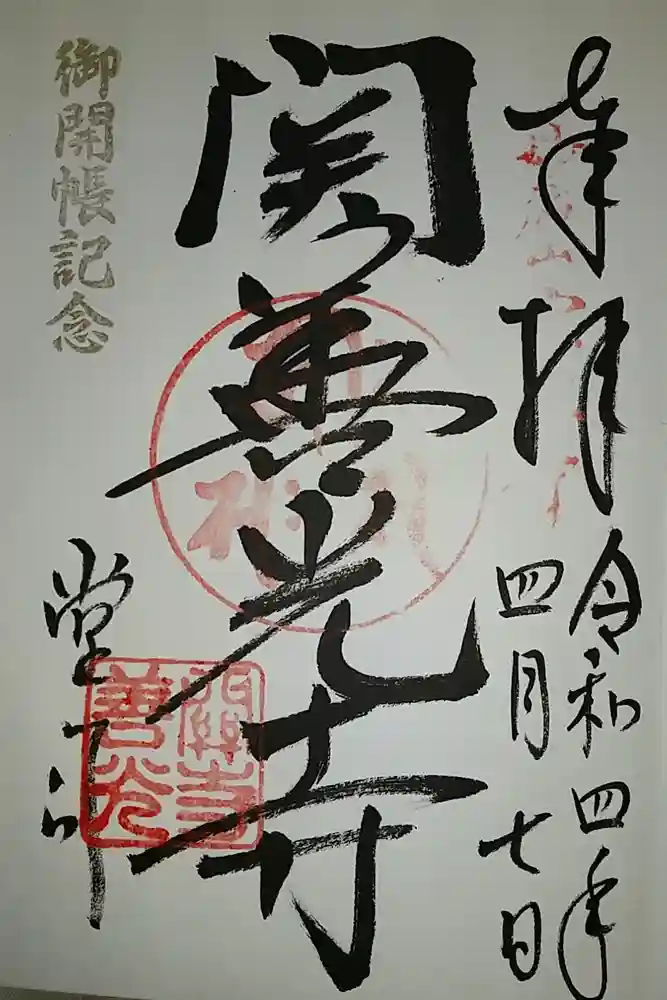 奉拝
令和四年
四月七日
関善光寺
御開帳記念
堂印
関善光寺